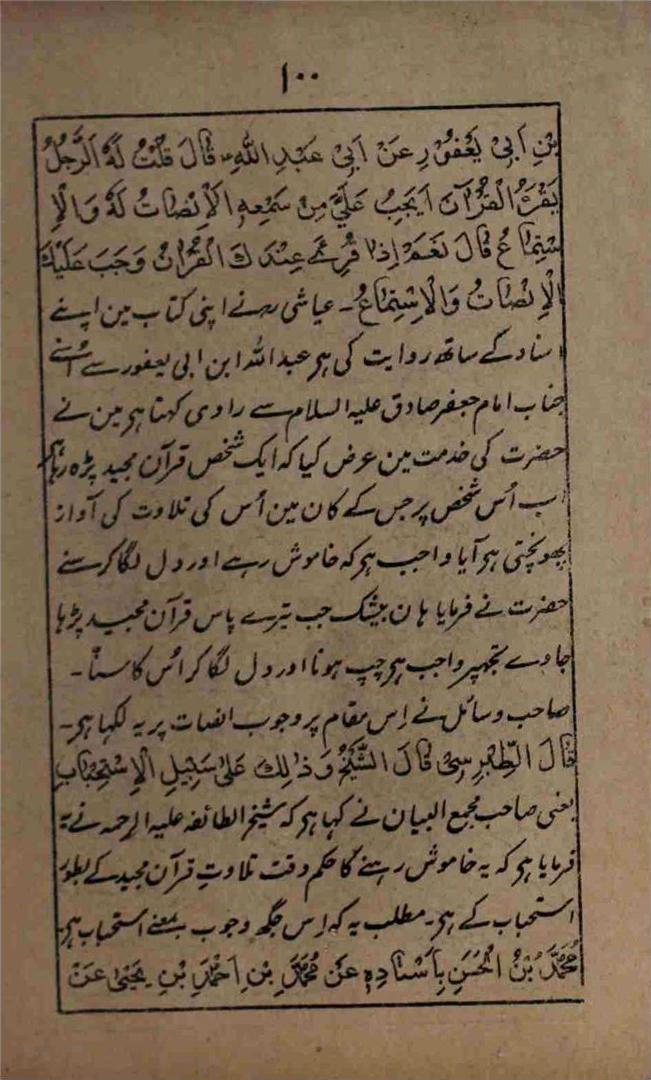 ۱۰۰
بْنِ اَبِیْ یَعْفُوْرٍ عَنْ اَبِیْ عَبْدِ اللّٰهِ قَالَ قُلْتُ لَهٗ اَلرَّجُلُ
یَقْرَءُ الْقُرْاٰنَ اَیَجِبُ عَلٰی مَنْ سَمِعَهٗ الْاِنْصَاتُ لَهٗ وَالْاِ
سْتِمَاعُ قَالَ نَعَمْ اِذَا قُرِئَ عِنْدَكَ الْقُرْاٰنُ وَجَبَ عَلَیْكَ
الْاِنْصَاتُ وَالْاِسْتِمَاعُ۔ عیاشی رہ نے اپنی کتاب مین اپنے
اسناد کے ساتھ روایت کی ہر عبداللہ ابن ابی یعفور سے اُسنے
جناب امام جعفر صادق علیہ السلام سے راوی کہتا ہر مین نے
حضرت کی خدمت مین عرض کیا کہ ایک شخص قرآن مجید پڑہ رہا ہر
اب اُس شخص پر جس کے کان مین اُس کی تلاوت کی آواز
پھونچتی ہر آیا واجب ہر کہ خاموش رہے اور دل لگا کر سنے
حضرت نے فرمایا ہان بیشک جب تیرے پاس قرآن مجید پڑہا
جاوے تجھپر واجب ہر چپ ہونا اور دل لگا کر اُس کا سننا۔
صاحب وسائل نے اِس مقام پر وجوب انصات پر یہ لکہا ہر۔
قَالَ الطَّبْرِسِیُّ قَالَ الشَّیْخُ وَذٰلِكَ عَلٰی سَبِیْلِ الْاِسْتِحْبَابِ
یعنی صاحب مجمع البیان نے کہا ہر کہ شیخ الطائفہ علیہ الرحمہ نے یہ
فرمایا ہر کہ یہ خاموش رہنے کا حکم وقت تلاوتِ قرآن مجید کے بطور
استحباب کے ہر۔ مطلب یہ کہ اِس جگہ وجوب بمعنے استحباب ہر۔
مُحَمَّدُ بْنُ الْحَسَنِ بِاَسْنَادِهٖ عَنْ مُحَمَّدِ بْنِ اَحْمَدَ بْنِ یَحْیٰی عَنْ